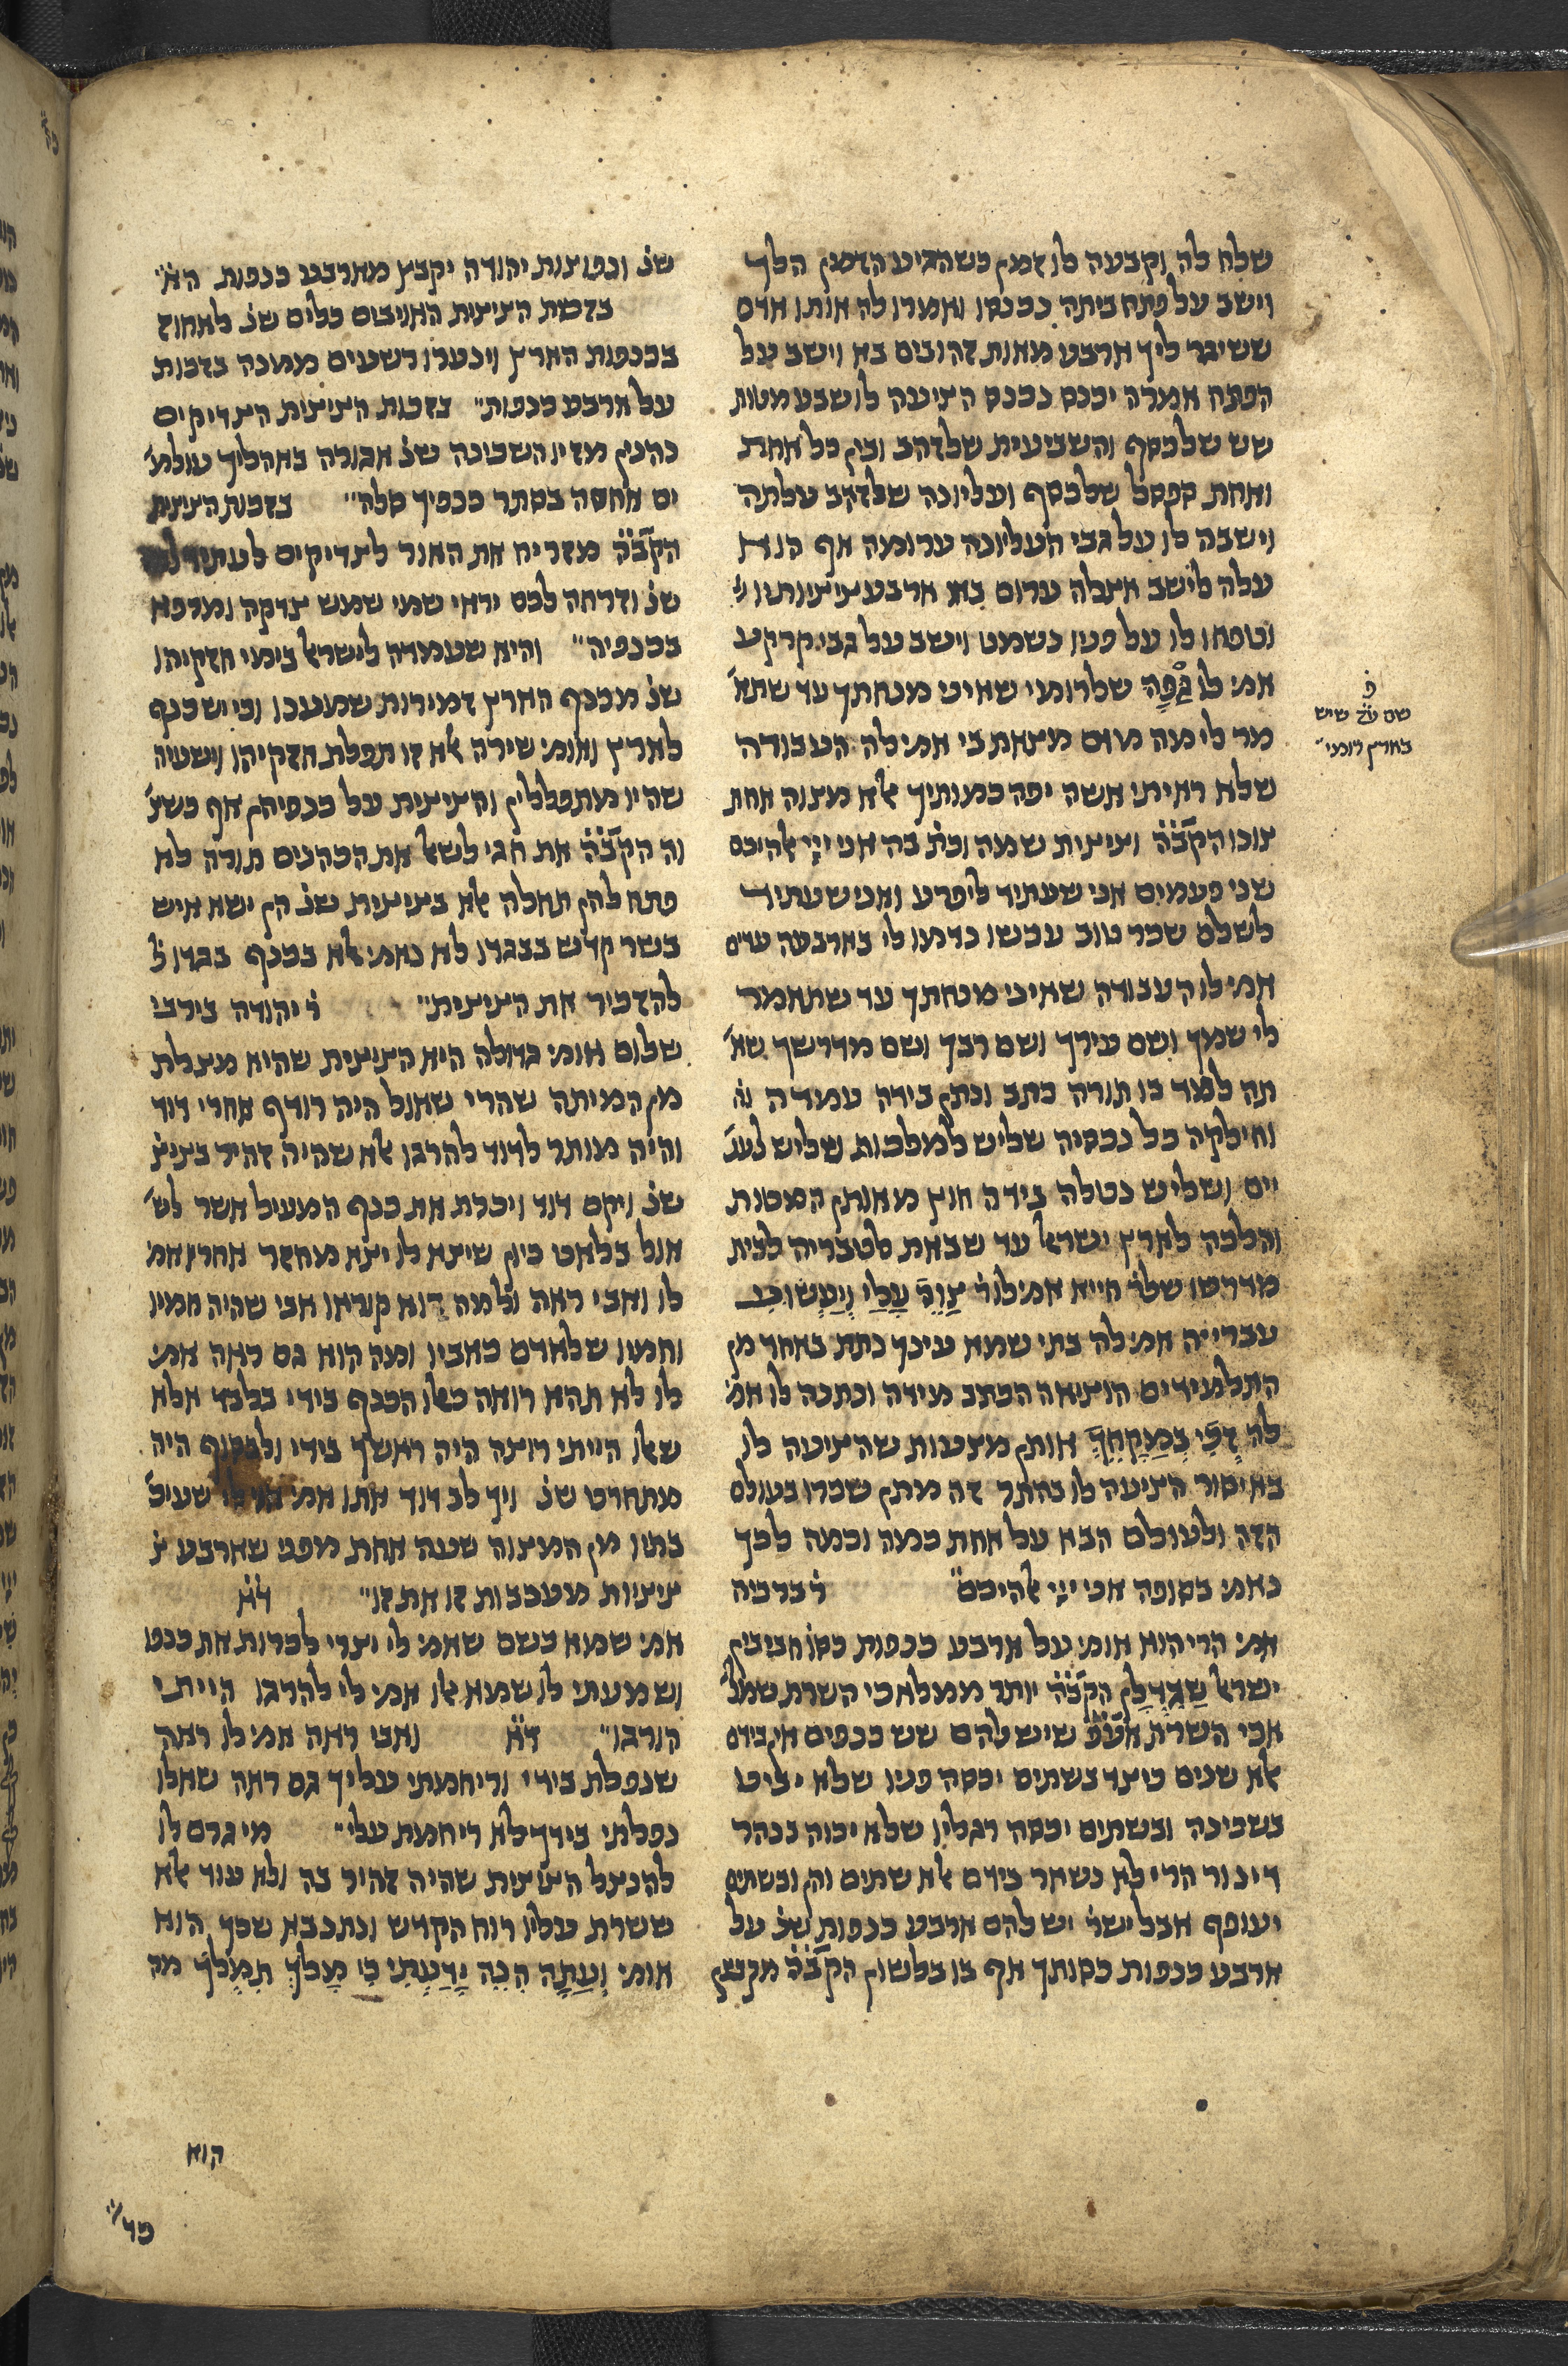 שלח לה וקבעה לו זמן כשהגיע הזמן הלך
וישב על פתח ביתה נכנסו ואמרו לה אותו אדם
ששיגר ליך ארבע מאות זהובים בא וישב על
הפתח אמרה יכנס נכנס הציעה לו שבע מטות
שש שלכסף והשביעית שלזהב ובין כל אחת
ואחת ספסל שלכסף ועליונה שלזהב עלתה
וישבה לו על גבי העליונה ערומה אף הוא
עלה לישב אצלה ערום באו ארבע ציציותיו
וטפחו לו על פניו נשמט וישב על גבי קרקע
אמ׳ לו גפה שלרומי שאיני מנחתך עד שתא׳
מר לי מה מום מצאת בי אמ׳ לה העבודה
שלא ראיתי אשה יפה כמותיך אלא מצוה אחת
צונו הק̇ב̇ה̇ וציצית שמה וכת̇ בה אני ייי אלהיכם
שני פעמים אני שעתיד ליפרע ואני שעתיד
לשלם שכר טוב עכשו נדמו לי כארבעה עדים
אמ׳ לו העבודה שאיני מנחתך עד שתאמר
לי שמך ושם עירך ושם רבך ושם מדרשך שא׳
תה למד בו תורה כתב ונתן בידה עמדה
וחילקה כל נכסיה שליש למלכות שליש לענ׳
יים ושליש נטלה בידה חוץ מאותן המטות
והלכה לארץ ישראל עד שבאת לטבריה לבית
מדרשו שלר̇ חייא אמ׳ לו ר̇ צוה עלי ויעשוני
עברייה אמ׳ לה בתי שמא עיניך נתת באחד מן
התלמידים הוציאה הכתב מידה ונתנה לו אמ׳
לה זכי במקחך אותן מצעות שהציעה לו
באיסור הציעה לו בהתר זה מתן שכרו בעולם
הזה ולעולם הבא על אחת כמה וכמה לכך
נאמ׳ בסופה אני ייי אלהיכם״ ר̇ ברכיה
אמ׳ הרי הוא אומ׳ על ארבע כנפות כסו חביבין
ישראל שגדלן הק̇ב̇ה̇ יותר ממלאכי השרת שמל׳
אכי השרת אע̇פ̇ שיש להם שש כנפים אין בידם
אלא שנים כיצד בשתים יכסה פניו שלא יביט
בשכינה ובשתים יכסה רגליו שלא יכוה בנהר
דינור הרי לא נשאר בידם אלא שתים והן ובשתים
יעופף אבל ישר̇ יש להם ארבע כנפות שנ̇ על
ארבע כנפות כסותך אף בו בלשון הק̇ב̇ה̇
פ̇
שם עיר שיש
בארץ רומי״
שנ̇ ונפוצות יהודה יקבץ מארבע כנפות הא׳
בזכות הציצית האויבים כלים שנ̇ לאחוז
בכנפות הארץ וינערו רשעים ממנה בזכות
על ארבע כנפות״ בזכות הציצית הצדיקים
נהנין מזיו השכינה שנ̇ אגורה באהליך עולמ׳
ים אחסה בסתר כנפיך סלה״ בזכות הציצית
הק̇ב̇ה̇ מזריח את האור לצדיקים לעתיד
שנ̇ וזרחה לכם יראי שמי שמש צדקה ומרפא
בכנפיה״ והיא שעמדה לישראל בימי חזקיהו
שנ̇ מכנף הארץ זמירות שמענו וכי יש כנף
לארץ ואומ׳ שירה אלא זו תפלת חזקיהו וישעיה
שהיו מתפללין והציצית על כנפיהן אף כשצ׳
וה הק̇ב̇ה̇ את חגי לשאל את הכהנים תורה לא
פתח להן תחלה אלא בציצית שנ̇ הן ישא איש
בשר קדש בבגדו לא נאמ׳ אלא בכנף בגדו
להזכיר את הציצית״ ר̇ יהודה בירבי
שלום אומ׳ גדולה היא הציצית שהיא מצלת
מן המיתה שהרי שאול היה רודף אחרי דוד
והיה מותר לדוד להרגו אלא שהיה זהיר בציצ׳
שנ̇ ויקם דוד ויכרת את כנף המעיל אשר לש׳
אול בלאט כיון שיצא לו יצא מחצר אחריו אמ׳
לו ואבי ראה ולמה הוא קוראו אבי שהיה חמיו
וחמיו שלאדם כאביו ומה הוא גם ראה אמ׳
לו לא תהא רואה כאלו הכנף בידי בלבד אלא
שאלו הייתי רוצה היה ראשך בידי ולבסוף היה
מתחרט שנ̇ ויך לב דוד אתו אמ׳ שעיכ׳
בתיו מן המצוה שעה אחת מפני שארבע צ
ציציות מעכבות זו את זו״ ד̇א̇
אמ׳ שמא כשם שאמ׳ לי יצרי לכרות את כנפו
ושמעתי לו שמא אלו אמ׳ לי להרגו הייתי
הורגו״ ד̇א̇ ואבי ראה אמ׳ לו ראה
שנפלת בידי וריחמתי עליך גם ראה שאלו
נפלתי בידך לא ריחמת עלי״ מי גרם לו
להנצל הציצית שהיה זהיר בה ולא עוד אלא
ששרת עליו רוח הקדש ונתנבא שכך הוא
אומ׳ ועתה הנה ידעתי כי מלך תמלך מה
הוא